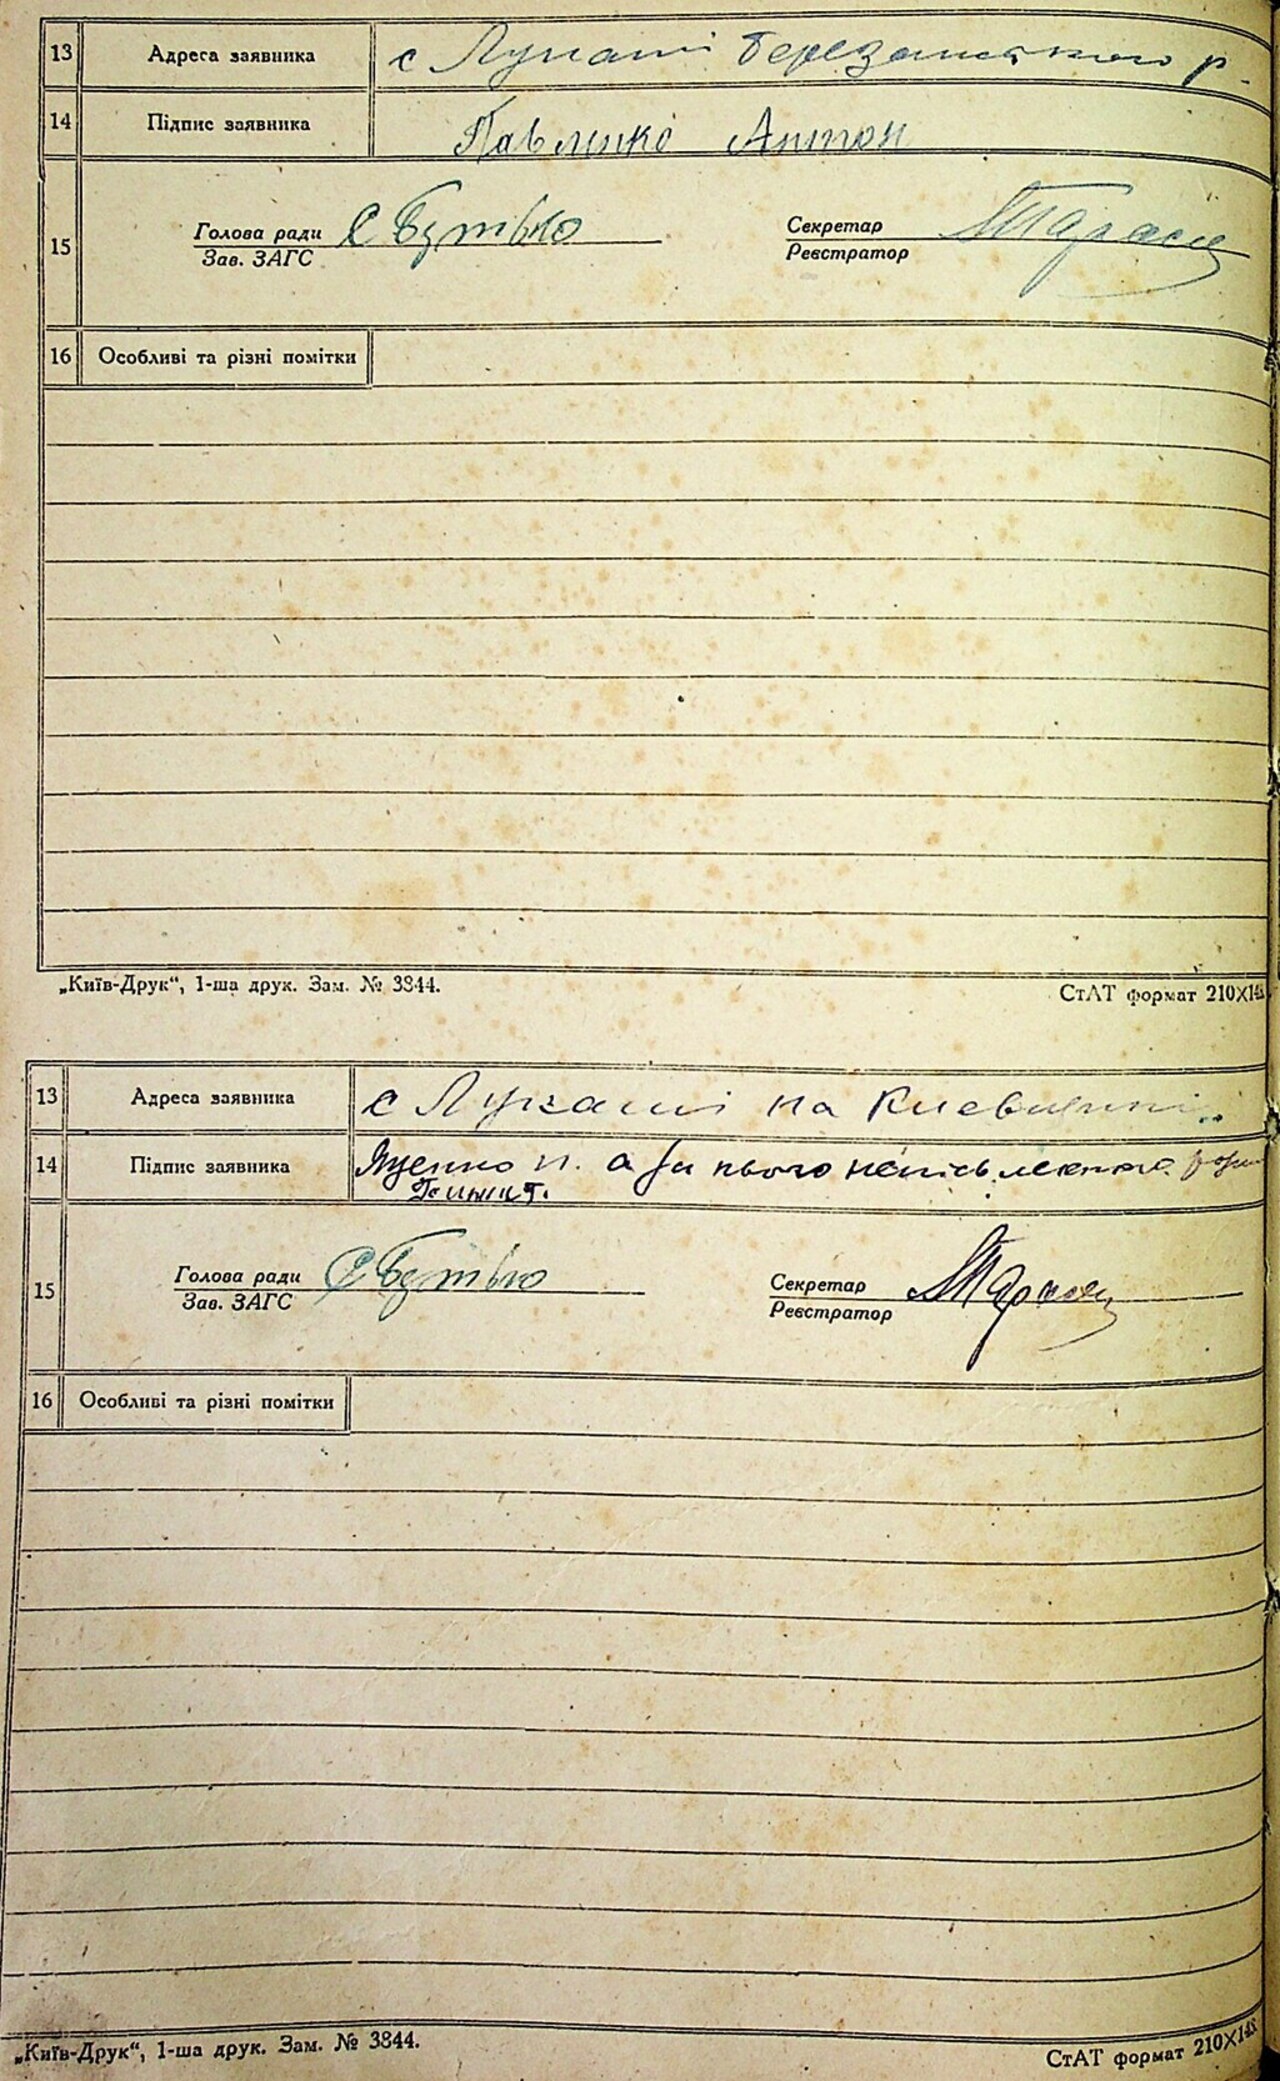 13 Адреса заявника с Лукаші Березанського р
14 Підпис заявника Павленко Антон
Голова ради С Бутько Секретар
15
Зав. ЗАГС Реєстратор
16 Особливі та різні помітки
„Київ-Друк“, 1-ша друк. Зам. № 3844. СтАТ формат 210X148
13 Адреса заявника с Лукаші на Киевщині
14 Підпис заявника Яценко п. а за нього неписьменного
Голова ради С Бутько Секретар
15
Зав. ЗАГС Реєстратор
16 Особливі та різні помітки
„Київ-Друк“, 1-ша друк. Зам. № 3844. СтАТ формат 210X148